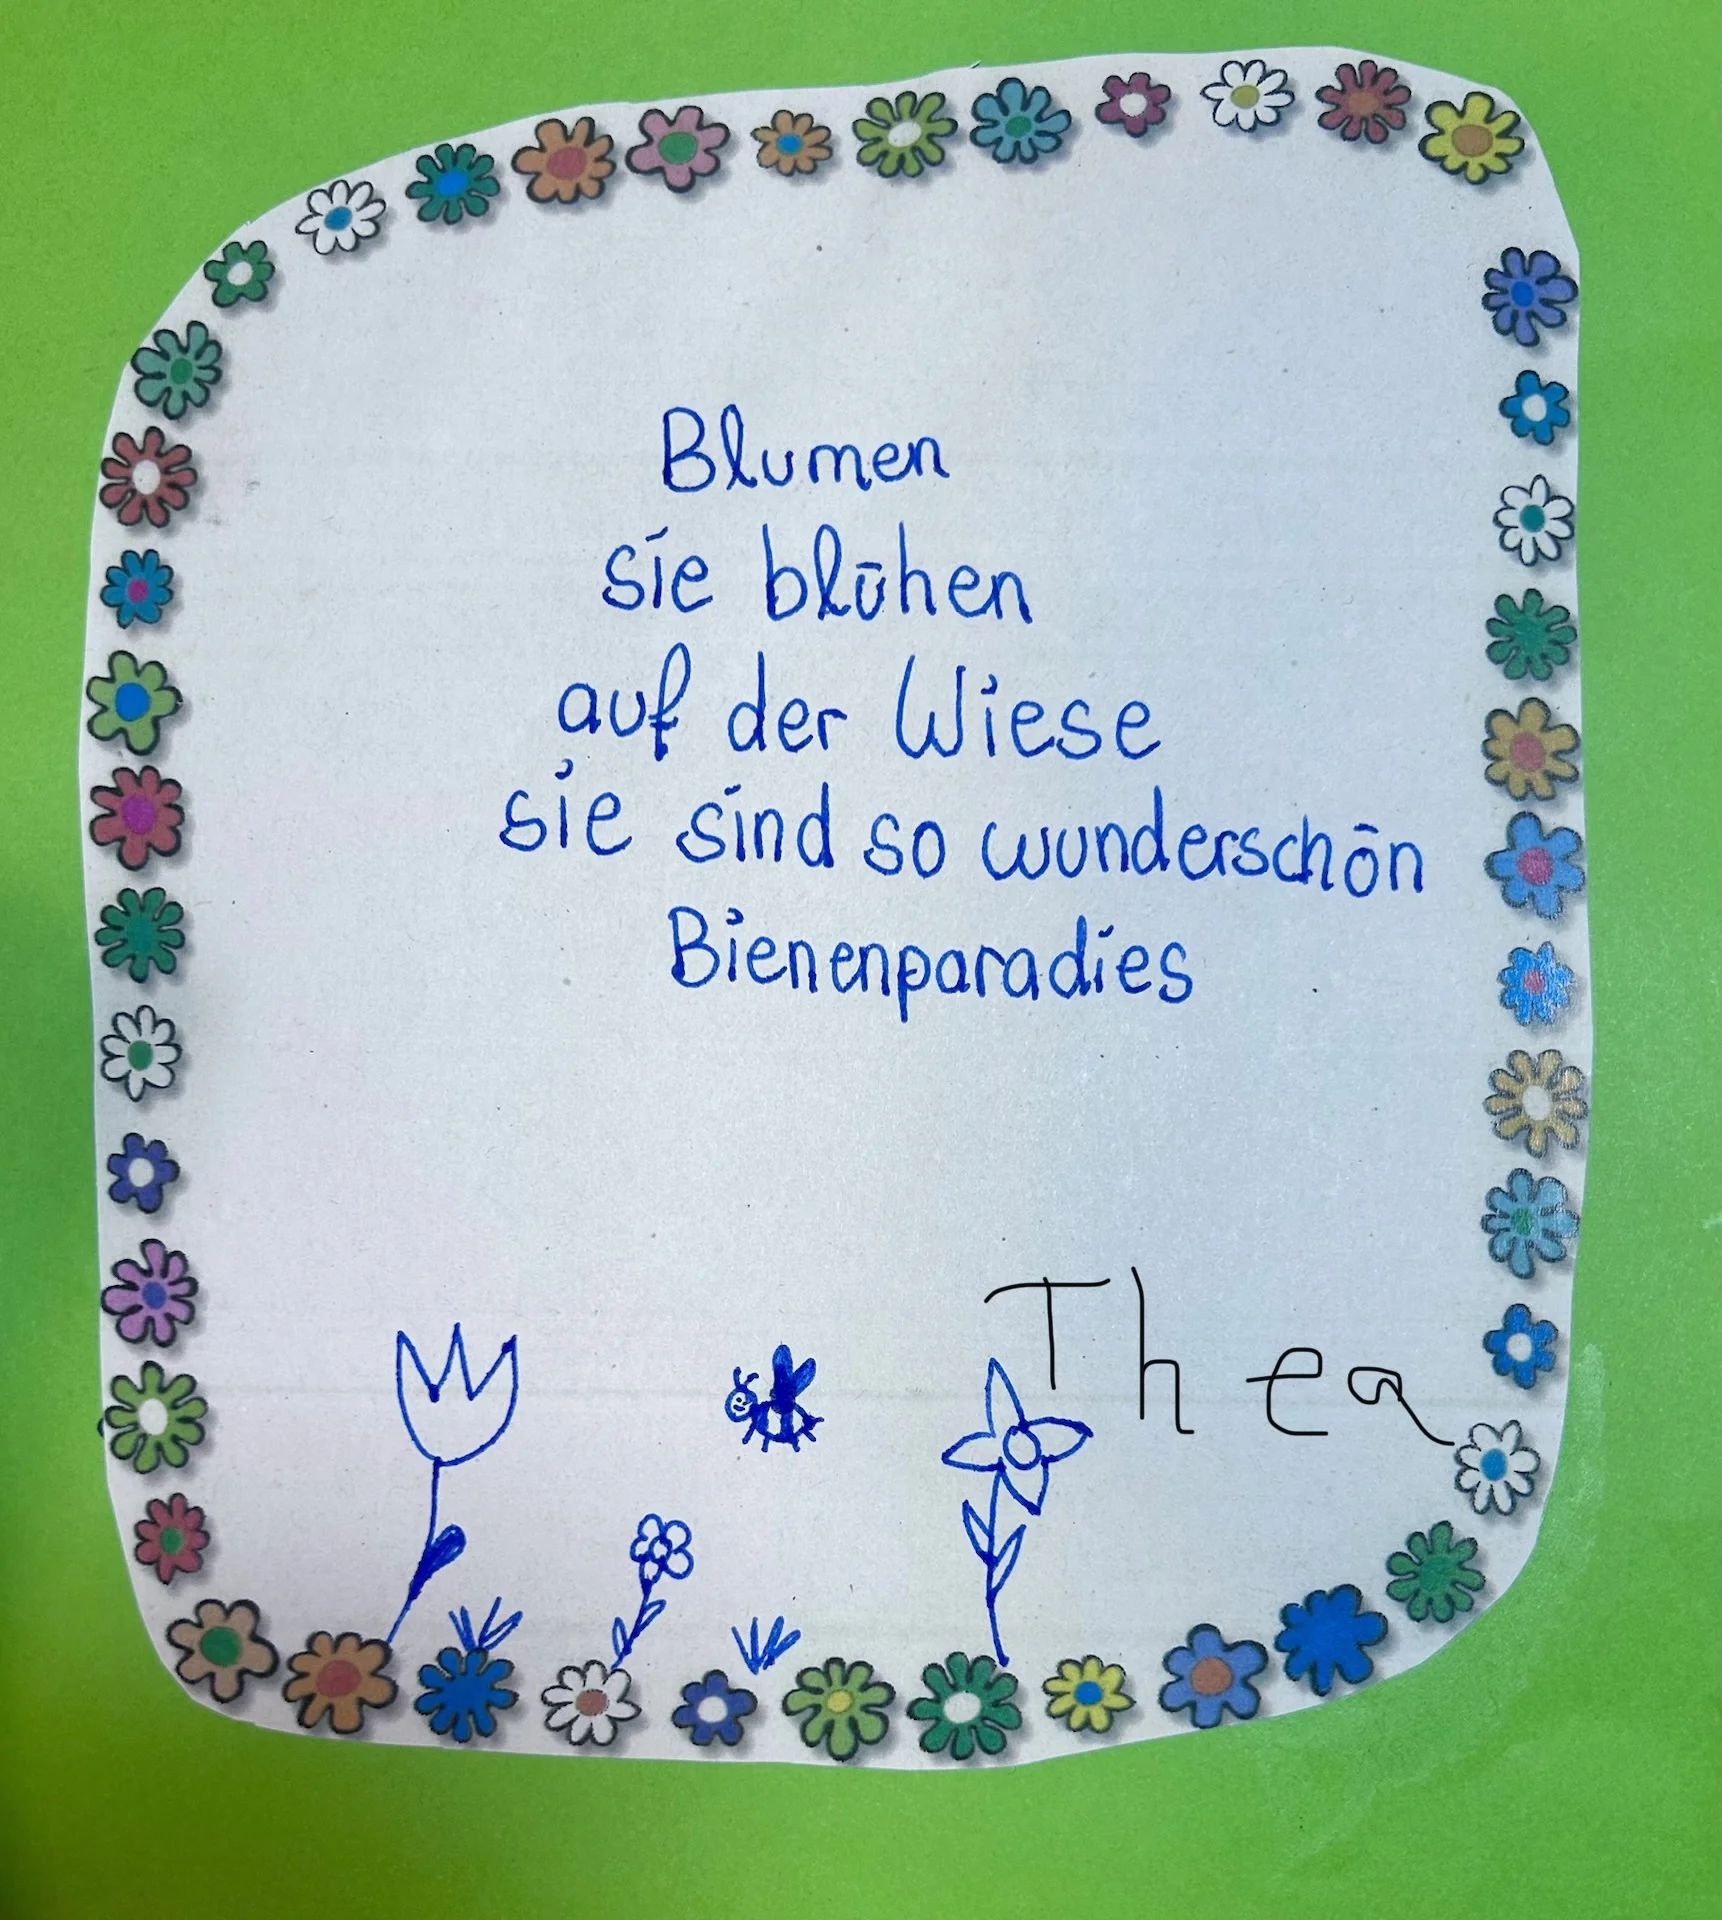 Blumen
sie blühen
auf der Wiese
sie sind so wunderschön
Bienenparadies
Thea